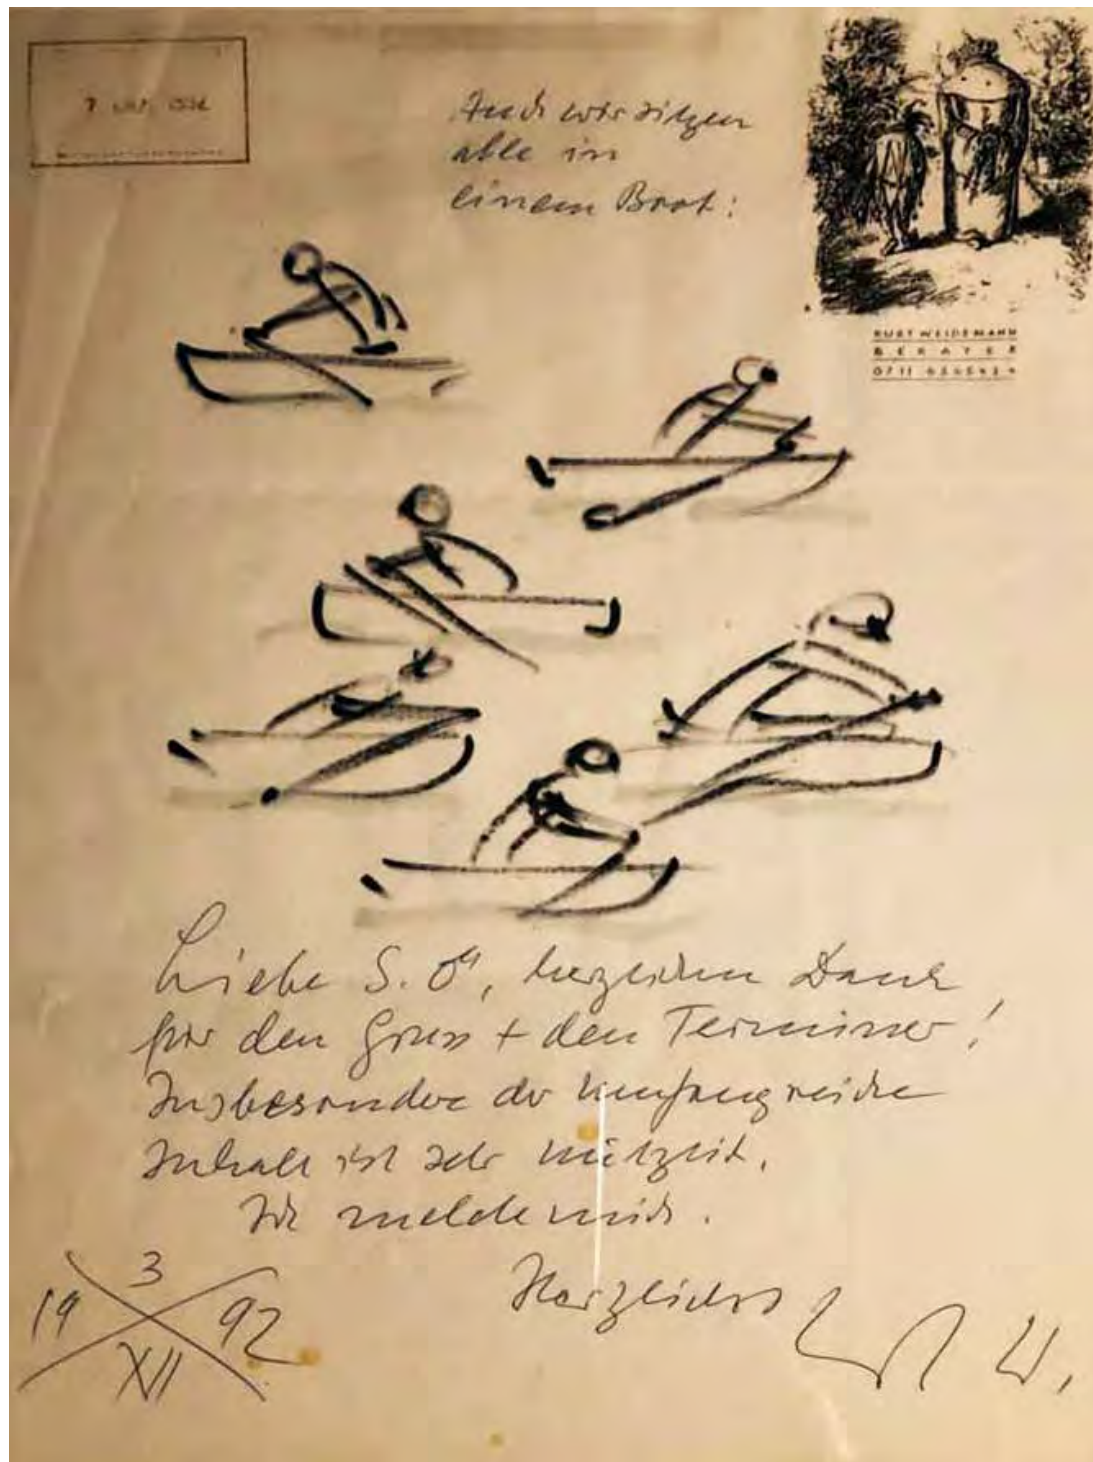 Auch wir sitzen
alle in
einem Boot:
KURT WEIDEMANN
BERATER
0711
Liebe S. Ö, herzlichen Dank
für den Gruss + den Terminer!
Insbesondere der umfangreiche
Inhalt ist sehr nützlich.
Ich melde mich.
3
19 92
XII
Herzlichst
W.